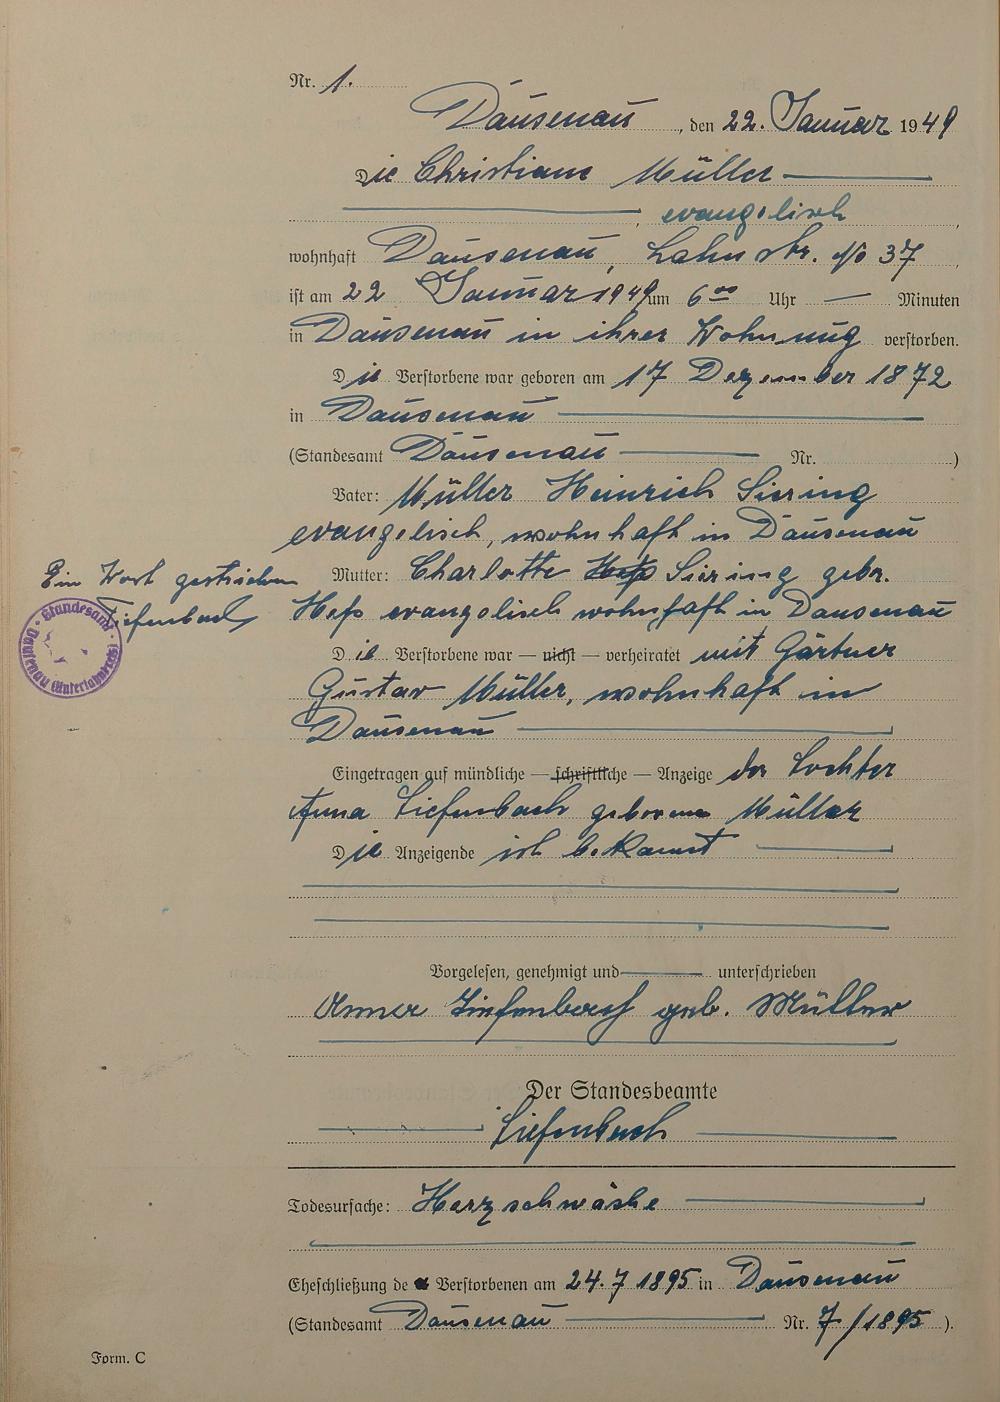 Nr. 1.
Dausenau, den 22. Januar 1949
Die Christiane Müller
evangelisch
wohnhaft Dausenau, Lahnstr. No 37
ist am 22 Januar 1949 um 6 00 Uhr — Minuten
in Dausenau in ihrer Wohnung verstorben.
Die Verstorbene war geboren am 17 Dezember 1872
in Dausenau
(Standesamt Dausenau Nr. )
Vater: Müller Heinrich Siering
evangelisch, wohnhaft in Dausenau
Mutter: Charlotte Heß Siering gebr.
Heß evangelisch wohnhaft in Dausenau
Ein Wort gestrichen
Tiefenbach
Standesamt Dausenau (Unterlahnkreis)
Die Verstorbene war — nicht — verheiratet mit Gärtner
Gustav Müller, wohnhaft in
Dausenau
Eingetragen auf mündliche — schriftliche — Anzeige der Tochter
Anna Tiefenbach geborene Müller
Die Anzeigende ist bekannt
Vorgelesen, genehmigt und unterschrieben
Anna Tiefenbach geb. Müller
Der Standesbeamte
Tiefenbach
Todesursache: Herzschwäche
Eheschließung de Verstorbenen am 24.7 1895 in Dausenau
(Standesamt Dausenau Nr. 7/1895).
Form. C